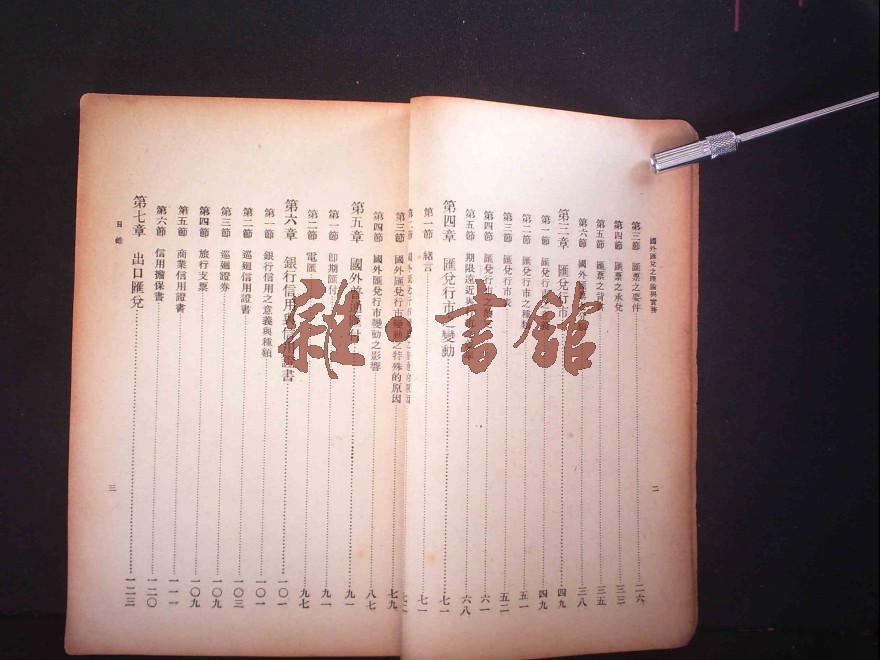 國外匯兌之理論與實務
二
第三節 匯票之要件 二六
第四節 匯票之承兌 三三
第五節 匯票之背書 三五
第六節 國外匯票 三八
第三章 匯兌行市 四九
第一節 匯兌行市 四九
第二節 匯兌行市之種類 五一
第三節 匯兌行市表 五二
第四節 匯兌行市之 六一
第五節 期限遠近與 六八
第四章 匯兌行市之變動 七一
第一節 緒言 七一
第三節 國外匯兌行市變動之特殊的原因 七九
第四節 國外匯兌行市變動之影響 八七
第五章 國外普通匯付 九一
第一節 即期匯付 九一
第二節 電匯 九七
第六章 銀行信用與信用證書 一〇一
第一節 銀行信用之意義與種類 一〇一
第二節 巡廻信用證書 一〇三
第三節 巡廻證券 一〇九
第四節 旅行支票 一〇九
第五節 商業信用證書 一一一
第六節 信用擔保書 一二〇
第七章 出口匯兌 一二三
目錄
三
雜·書館